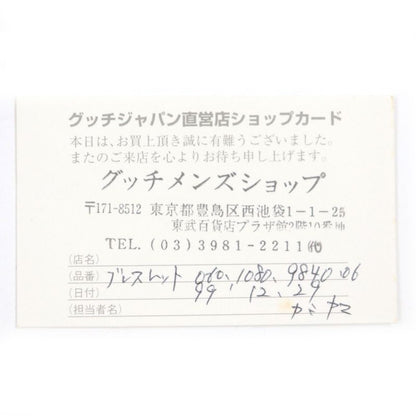 グッチジャパン直営店ショップカード
本日は、お買上頂き誠に有難うございました。
またのご来店を心よりお待ち申し上げます。
グッチメンズショップ
〒171-8512 東京都豊島区西池袋1-1-25
東武百貨店プラザ館2階10番地
TEL. (03)3981-2211㈹
(店名)
(品番) ブレスレット 060.1080.9840.06
(日付) 99.12.29
(担当者名) カミヤマ